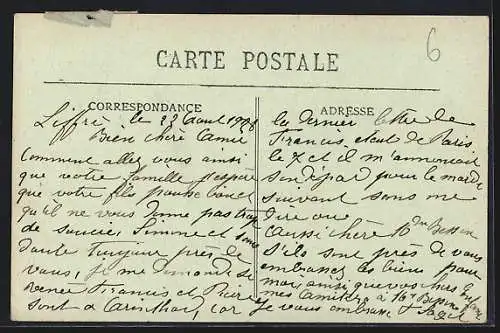 6
CARTE POSTALE
CORRESPONDANCE
ADRESSE
Liffré le 22 Aout 1908
Bien chère Camie
Comment allez vous ainsi
que votre famille j'espère
que votre fils pousse bien
qu'il ne vous donne pas trop
de soucie, Simone et
doute toujour près de
vous, je me demande si
René Francis et Pierre
sont a car
la dernier lettre de
Francis etait de Paris
le 7 et il m'annoncait
son depad pour le mardi
suivant sans me
dire ou
aussi chère Me
S'ils sont près de vous
embrassez les bien pour
moi, ainsi que vos chers enfants
mes amitiés à Mr
je vous embrasse